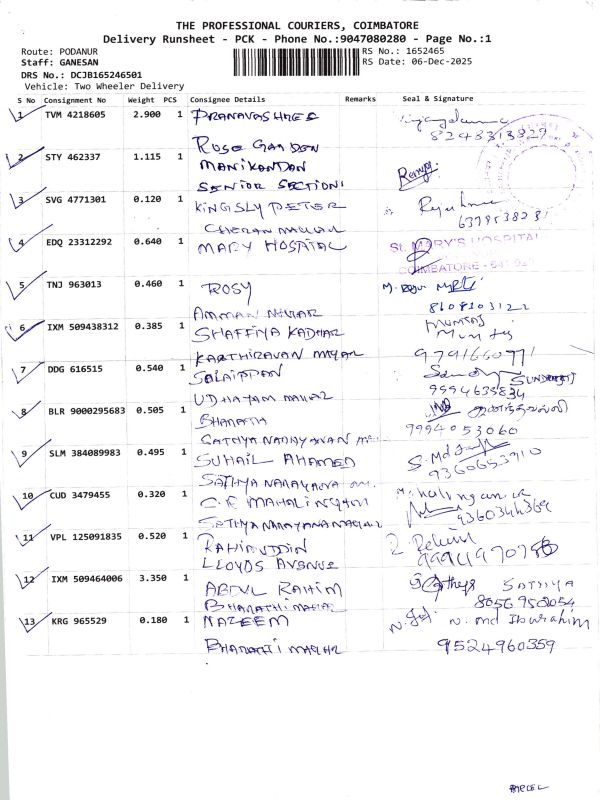 THE PROFESSIONAL COURIERS, COIMBATORE
Delivery Runsheet - PCK - Phone No.:9047080280 - Page No.:1
Route: PODANUR
RS No.: 1652465
Staff: GANESAN
RS Date: 06-Dec-2025
DRS No.: DCJB165246501
Vehicle: Two Wheeler Delivery
S No Consignment No Weight PCS Consignee Details Remarks Seal & Signature
1 TVM 4218605 2.900 1 PRANAVASHREE
8248313829
ROSE GARDEN
2 STY 462337 1.115 1 MANIKANDAN
SENIOR SECTION
3 SVG 4771301 0.120 1 KINGSLY PETER
CHERAN
4 EDQ 23312292 0.640 1 MARY HOSPITAL
ST. MARY'S HOSPITAL
COIMBATORE
5 TNJ 963013 0.460 1 ROSY
AMMAN NAGAR
6 IXM 509438312 0.385 1 SHAFFIYA KADHAR
MUMTAJ
KARTHIRAVAN NAGAR
9791660771
7 DDG 616515 0.540 1 SALAIPPAN
UDHAYAM NAGAR
9994633834
8 BLR 9000295683 0.505 1 BHARATH
9994053060
SATHYA NARAYANAN
9 SLM 384089983 0.495 1 SUHAIL AHAMED
9360653910
SATHYA NARAYANA
10 CUD 3479455 0.320 1 C.E MAHALINGAM
9360344369
SATHYANARAYANA NAGAR
11 VPL 125091835 0.520 1 RAHIRUDDIN
LLOYDS AVENUE
12 IXM 509464006 3.350 1 ABDUL RAHIM
SATHIYA
8056950054
BHARATHI NAGAR
13 KRG 965529 0.180 1 NAZEEM
N. md Iburahim
BHARATHI NAGAR
9524960359
PARCEL